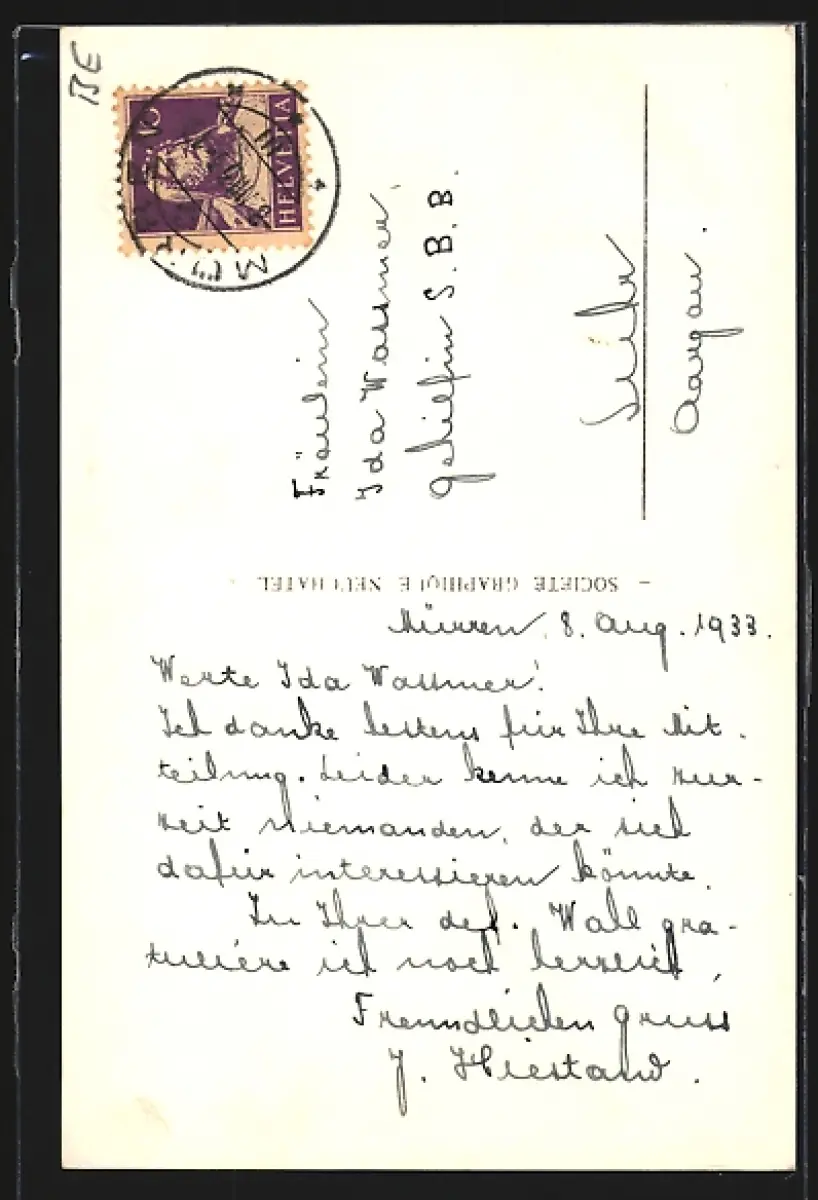 BE
10
HELVETIA
MÜRREN
Fräulein
Ida Wassmer,
Gehilfin S.B.B.
Aargau.
– SOCIETE GRAPHIQUE NEUCHATEL
Mürren, 8. Aug. 1933.
Werte Ida Wassmer!
Ich danke bestens für Ihre Mit-
teilung. Leider kenne ich zur-
zeit niemanden, der sich
dafür interessieren könnte.
Zu Ihrer def. Wahl gra-
tuliere ich noch herzlich.
Freundlichen Gruss
J. Hiestand.